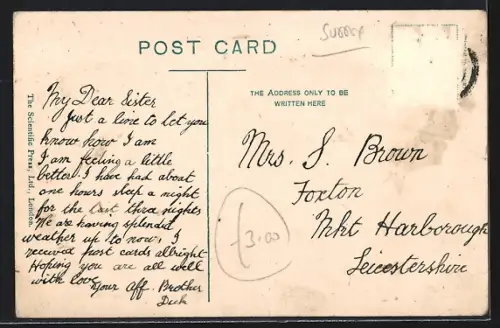 Surrey
POST CARD
THE ADDRESS ONLY TO BE
WRITTEN HERE
The Scientific Press, Ltd., London.
My Dear Sister
Just a line to let you
know how I am
I am feeling a little
better I have had about
one hours sleep a night
for the last three nights
We are having splendid
weather up to now, I
received post cards allright
Hoping you are all well
with love
Your Aff. Brother
Dick
Mrs. S. Brown
Foxton
Mkt Harborough
Leicestershire
£3.00